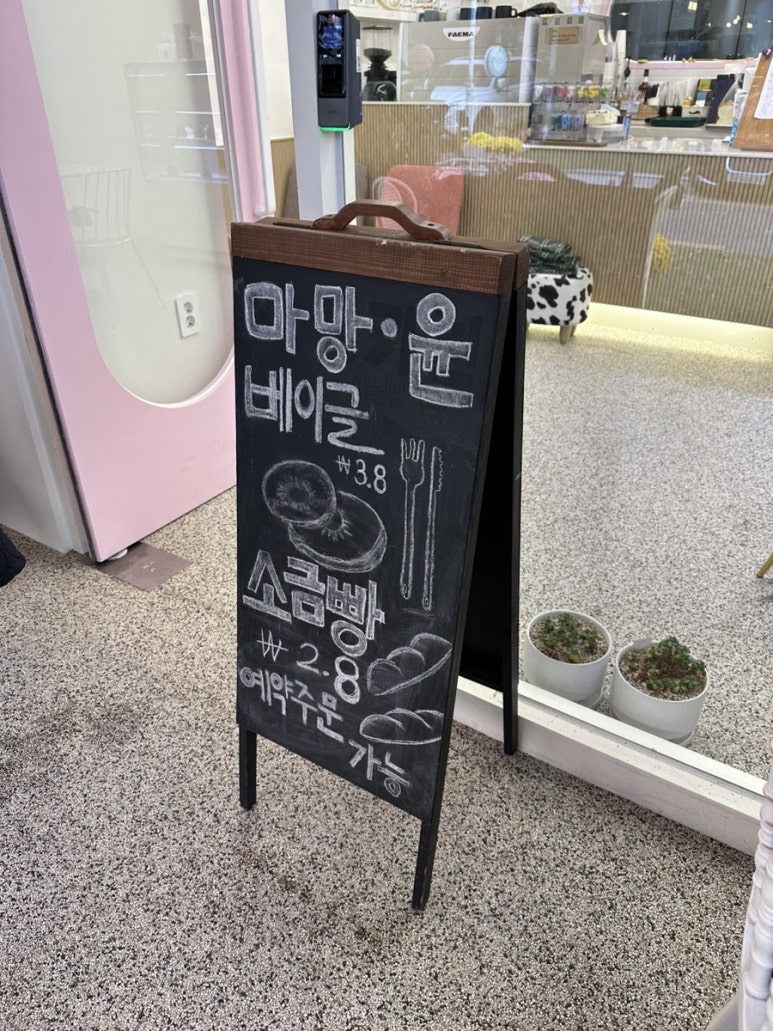 FAEMA
마망·윤
베이글
₩3.8
소금빵
₩2.8
예약주문
가능